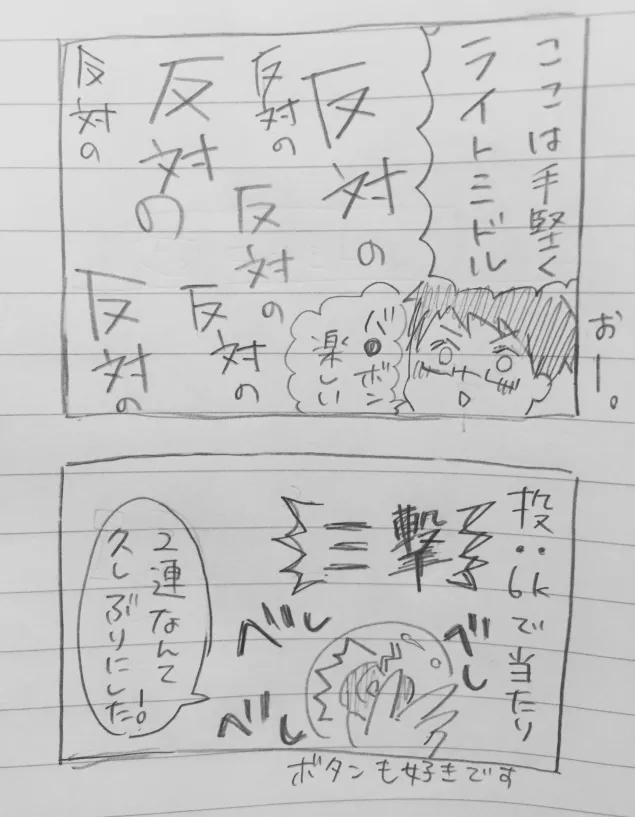 ここは手堅く
ライトミドル
反対の
反対の
反対の
反対の
反対の
反対の
反対の
バ●ボン
楽しい
おー。
投‥6kで当たり
三撃
べし
べし
べし
2連なんて
久しぶりにした!
ボタンも好きです